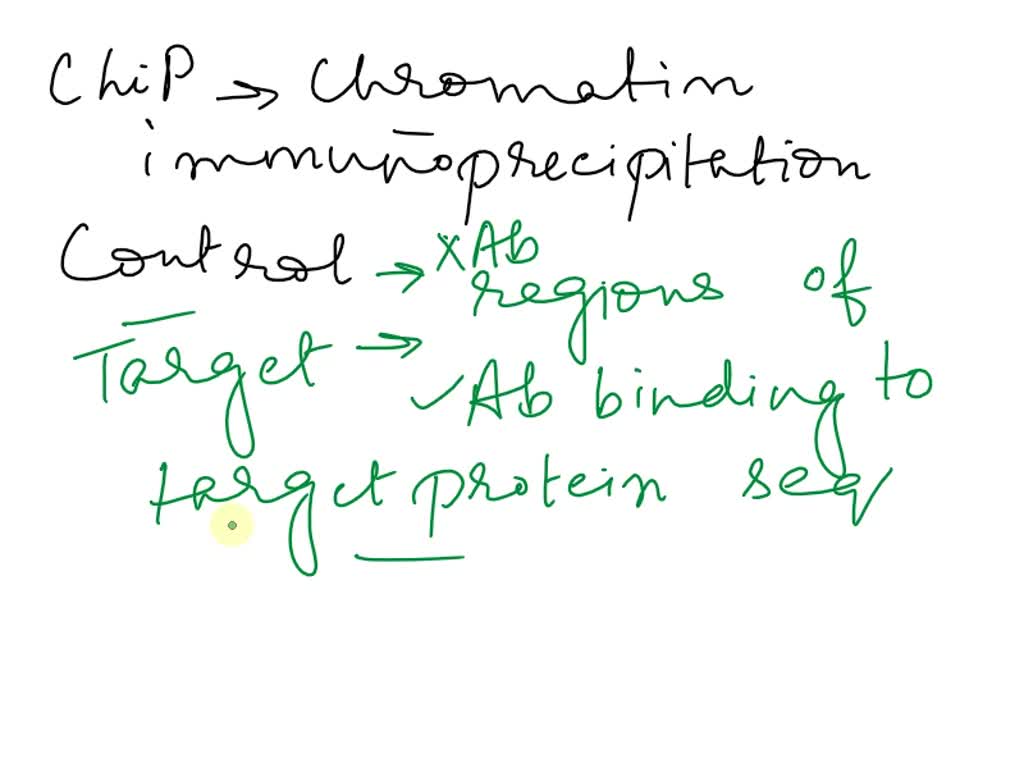 ChiP → Chromatin
immunoprecipitation
Control → xAb
regions of
Target → ✓Ab binding to
target protein seq